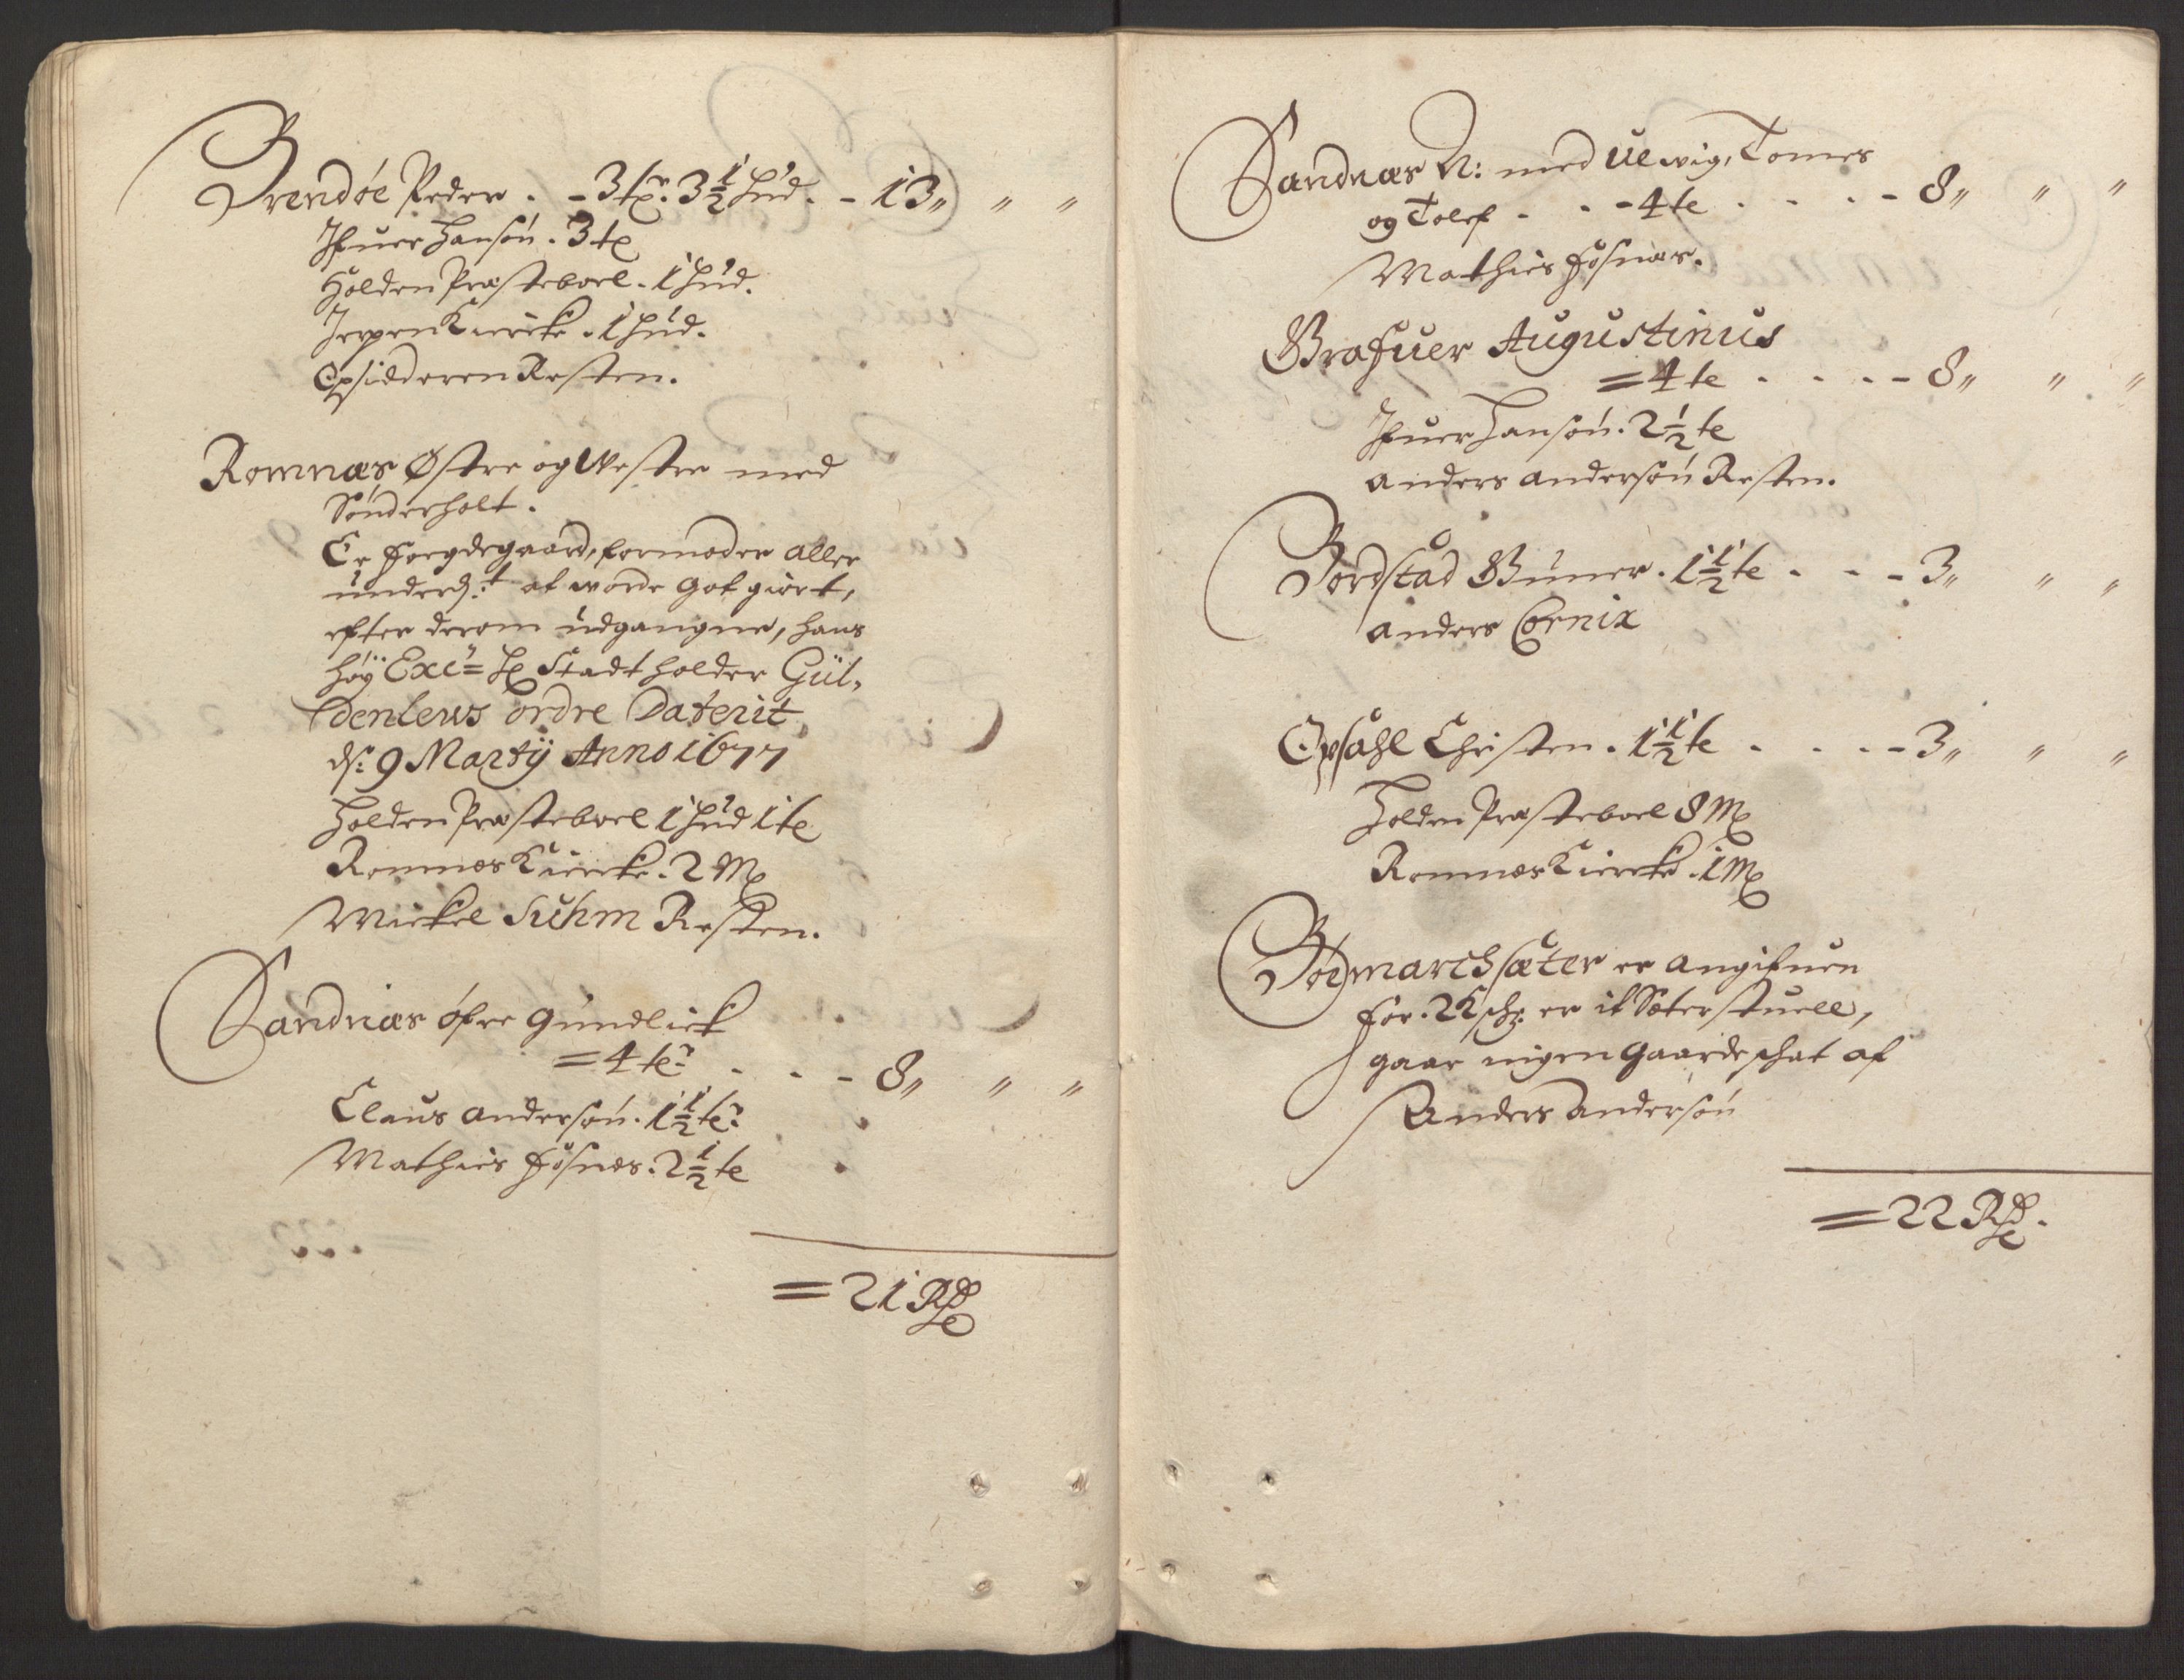 Brendøe Peder . - 3 tr: 3½ hud. - 13 „ „ „
Ifuer Hansøn . 3 te
Holden Præsteboel . 1 hud.
Jerpen Kiercke . 1 hud.
Opsidderen Resten.
Romnæs Østre og Westre med
Sönderholt .
Er foegdegaard, formoder aller
underd:t at worde Got giort,
efter derom udgangne, hans
høÿ Exc: H Stadtholder Gül,
denlews ordre Daterit
ds: 9 Martÿ Anno 1677
Holden Præsteboel 1 hud 1 te
Romnes Kiercke . 2 M
Mickel Suhm Resten.
Sandnæs öfre Gundlick
= 4 te . - - 8 „ „ „
Claus Andersøn . 1½ te
Mathies Fosnes . 2½ te
= 21 Rd
Sandnæs N: med Ulwig, Tomes
og Tolef - . - 4 te . - . - 8 „ „ „
Mathies Fosnæs.
Brafuer Augustinus
= 4 te . . . - 8 „ „ „
Ifuer Hansøn . 2½ te
Anders Andersøn Resten.
Bordstad Gunner . 1½ te - - - 3 „ „ „
Anders Cornix
Opsahl Christen . 1½ te . . . - 3 „ „ „
Holden Præsteboel 8 M
Romnes Kiercke . 1 M
Boemarch sæter er angifuen
for . 2 K sch: er it Sæter stuell,
gaar ingen gaarde schat af
Anders Andersøn
= 22 Rd .